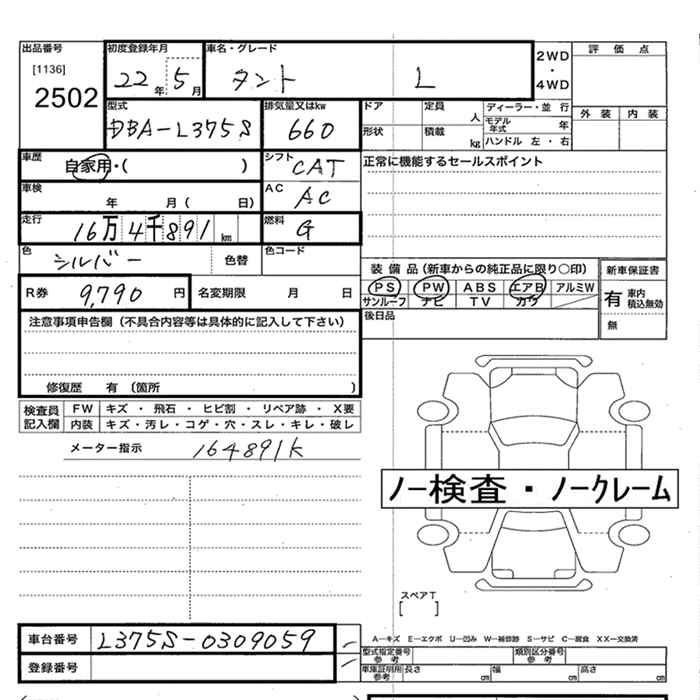 出品番号 初度登録年月 車名・グレード 2WD 評 価 点
[1136] 22年 5月 タント L ・
2502 4WD
型式 排気量又はkw ドア 定員 人 ディーラー・並 行 外 装 内 装
DBA-L375S 660 形状 積載 kg モデル年式 年
ハンドル 左 ・ 右
車歴 自家用・( ) シフト CAT 正常に機能するセールスポイント
車検 年 月 ( 日) AC AC
走行 16万4千891km 燃料 G
色 シルバー 色替 色コード
装 備 品 (新車からの純正品に限り○印) 新車保証書
R券 9,790 円 名変期限 月 日 PS PW ABS エアB アルミW 有 車内積込無効
サンルーフ ナビ TV カワ 無
注意事項申告欄 (不具合内容等は具体的に記入して下さい) 後日品
修復歴 有 〔箇所 〕
検査員記入欄 FW キズ ・ 飛石 ・ ヒビ割 ・ リペア跡 ・ X要
内装 キズ・汚レ・コゲ・穴・スレ・キレ・破レ
メーター指示 164891K
ノー検査・ノークレーム
スペアT
[ ]
車台番号 L375S-0309059
A―キズ E―エクボ U―凹み W―補修跡 S―サビ C―腐食 XX―交換済
登録番号 型式指定番号 参考 類別区分番号 参考
車庫証明用 参考 長さ cm 幅 cm 高さ cm